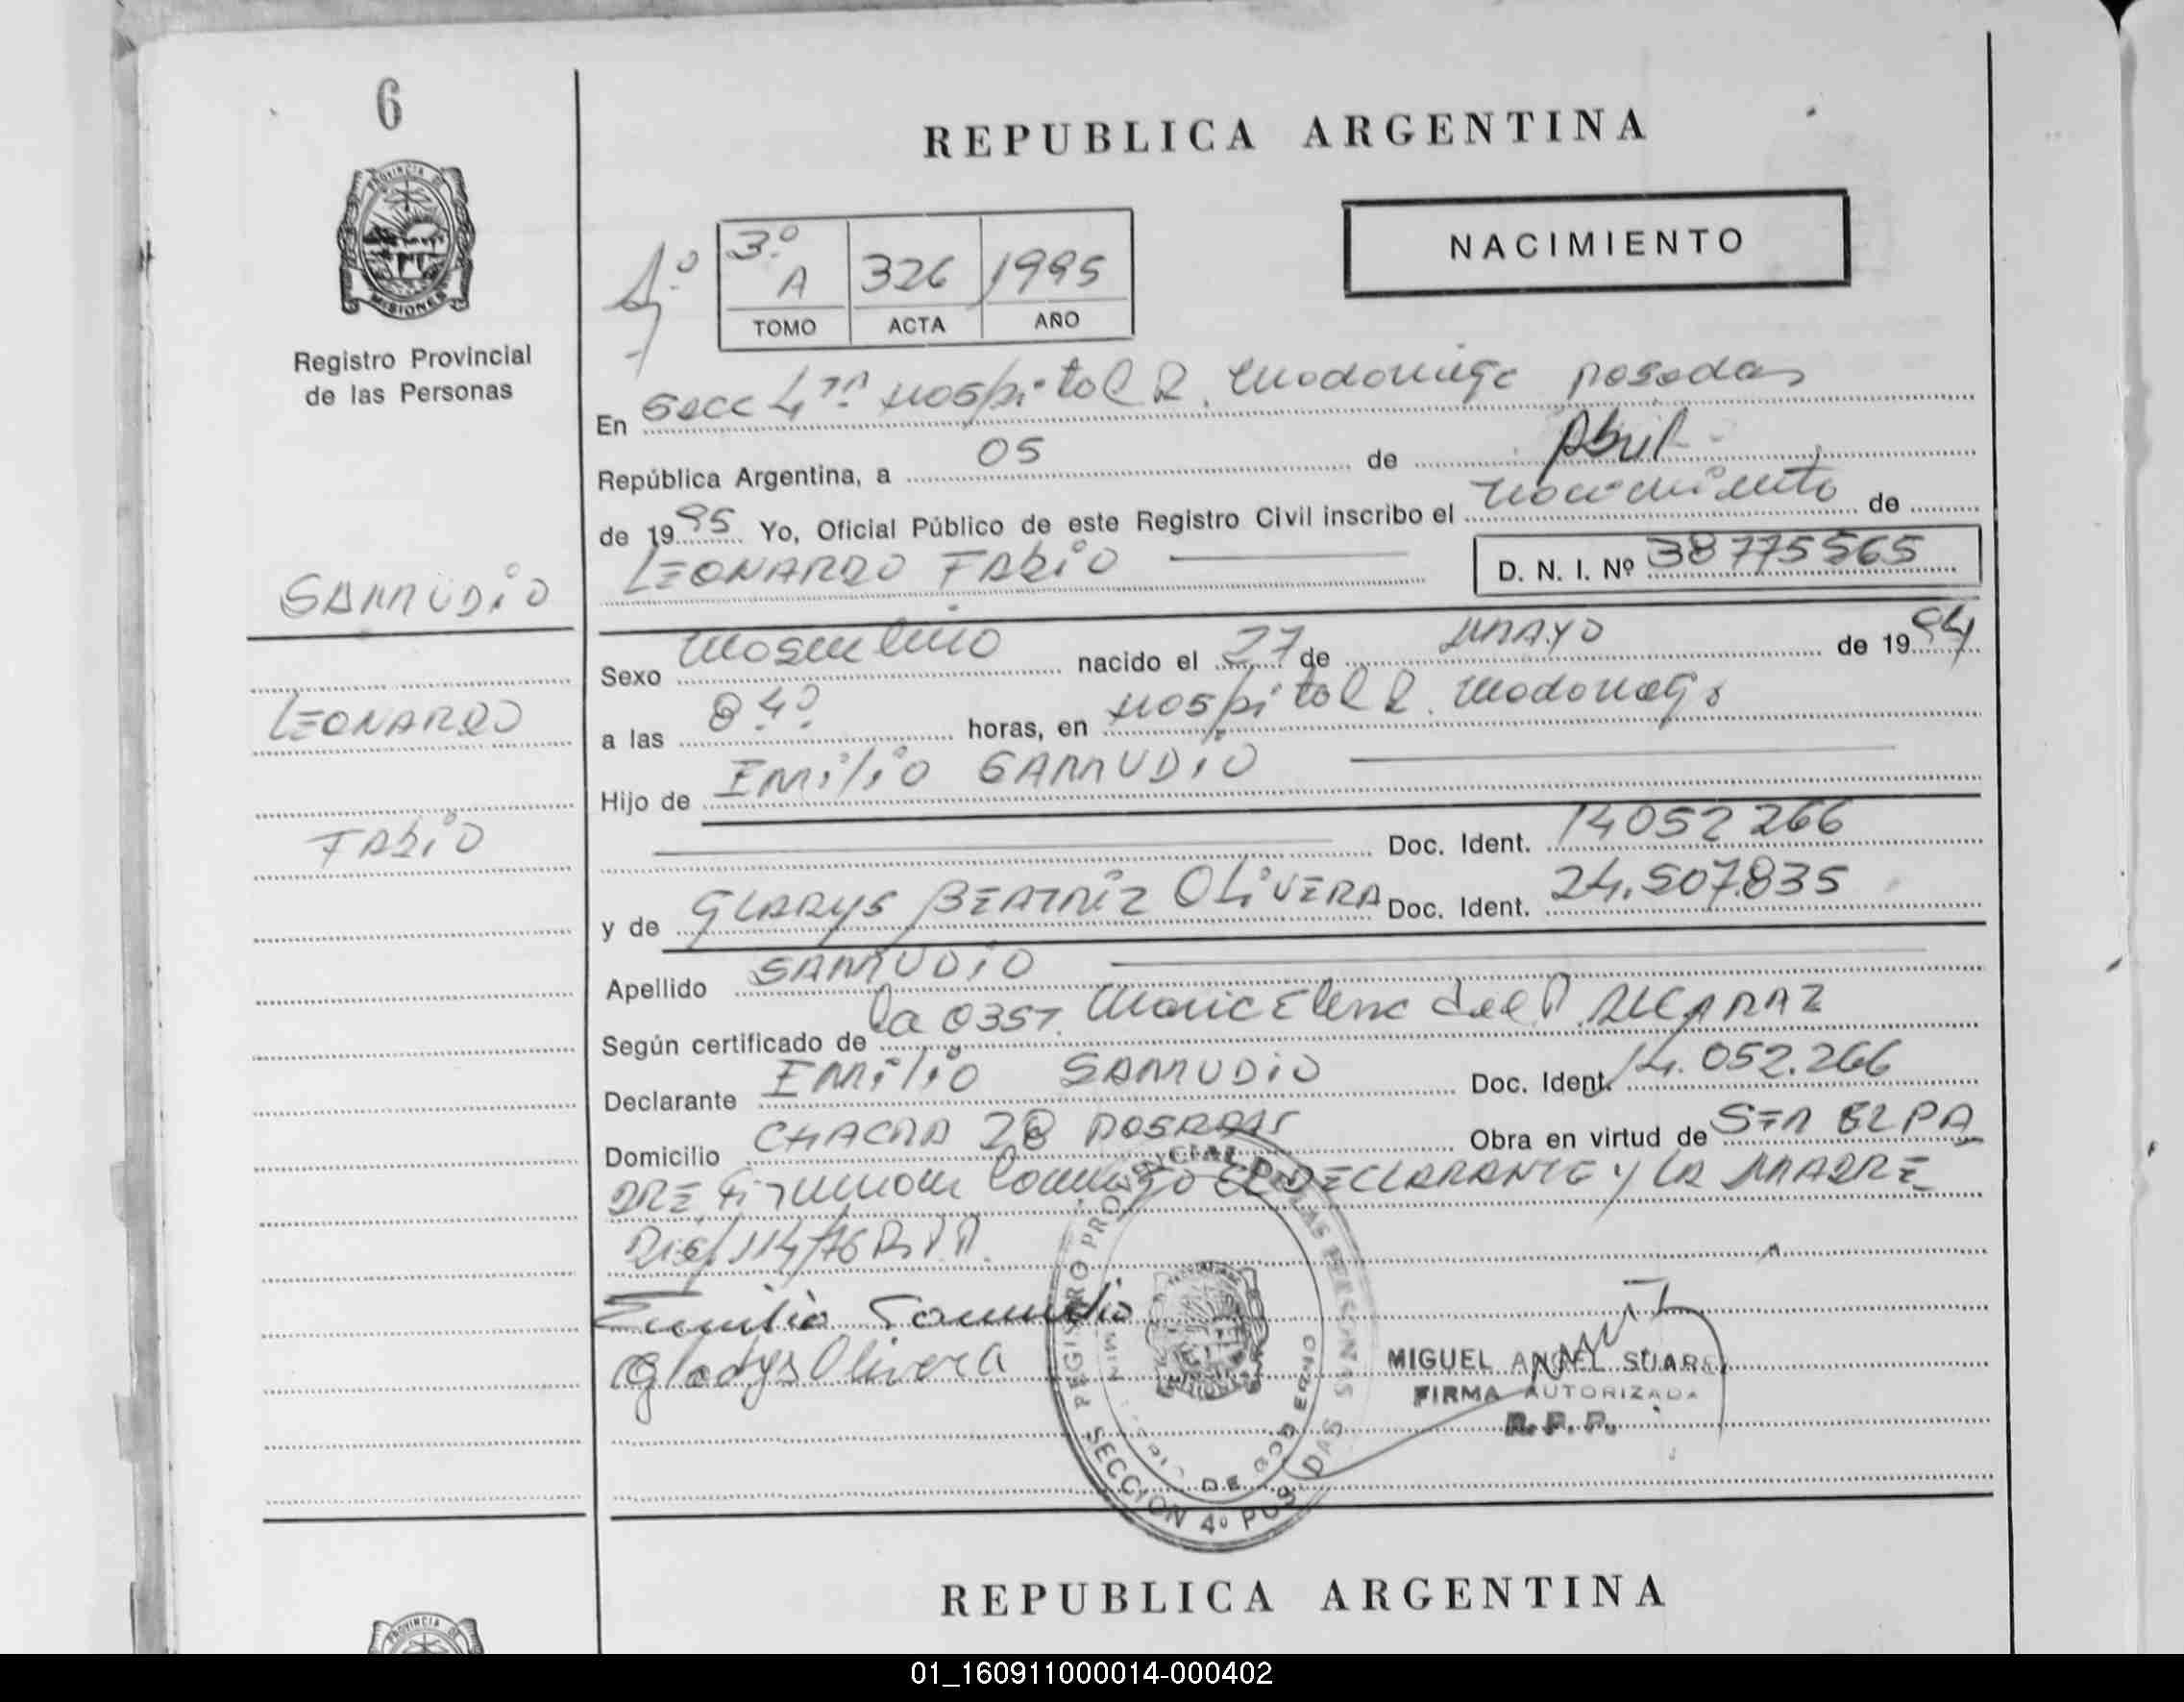 6
REPUBLICA ARGENTINA
PROVINCIA DE
MISIONES
Registro Provincial
de las Personas
NACIMIENTO
3º A 326 1995
TOMO ACTA AÑO
En Secc 4ta Hospital R. Madariaga Posadas
República Argentina, a 05 de Abril
de 1995 Yo, Oficial Público de este Registro Civil inscribo el nacimiento de
LEONARDO FABIO D. N. I. Nº 38775565
SAMUDIO
LEONARDO
FABIO
Sexo Masculino nacido el 27 de MAYO de 1994
a las 8 40 horas, en Hospital R. Madariaga
Hijo de EMILIO SAMUDIO
Doc. Ident. 14052266
y de GLADYS BEATRIZ OLIVERA Doc. Ident. 24.507.835
Apellido SAMUDIO
Según certificado de la OBST. Maria Elena del P. ALCARAZ
Declarante EMILIO SAMUDIO Doc. Ident. 14.052.266
Domicilio CHACRA 28 POSADAS Obra en virtud de SER EL PA
DRE Firman conmigo EL DECLARANTE y LA MADRE
114/76 R.P.P.
Emilio Samudio
Gladys Olivera
REGISTRO PROVINCIAL DE LAS PERSONAS
SECCION 4º POSADAS
DE GOBIERNO
MIGUEL ANGEL SUAREZ
FIRMA AUTORIZADA
R. P. P.
REPUBLICA ARGENTINA
PROVINCIA
01_160911000014-000402